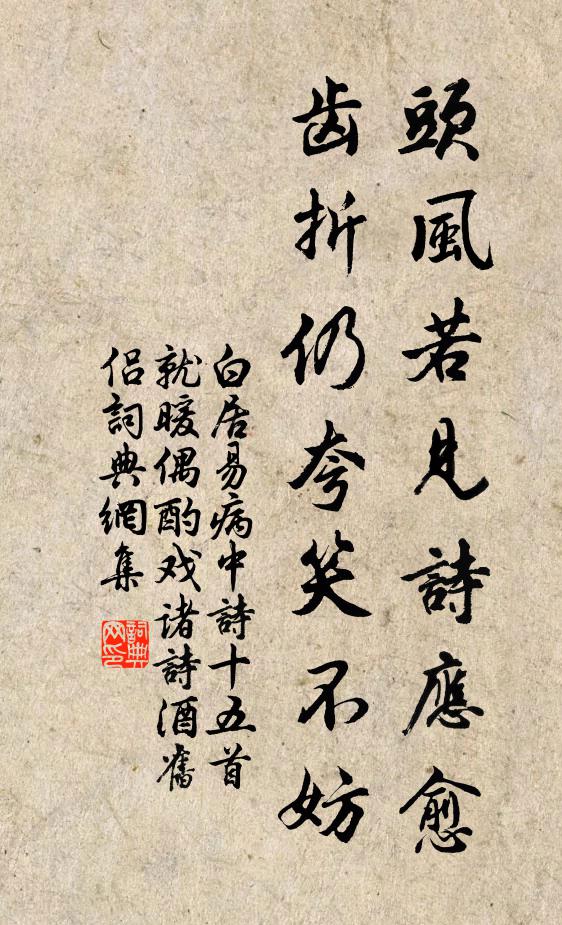 頭風若見詩應愈
齿折仍夸笑不妨
白居易病中詩十五首
就暖偶酌戏诸詩酒舊
侣詞典網集
詞典
网印